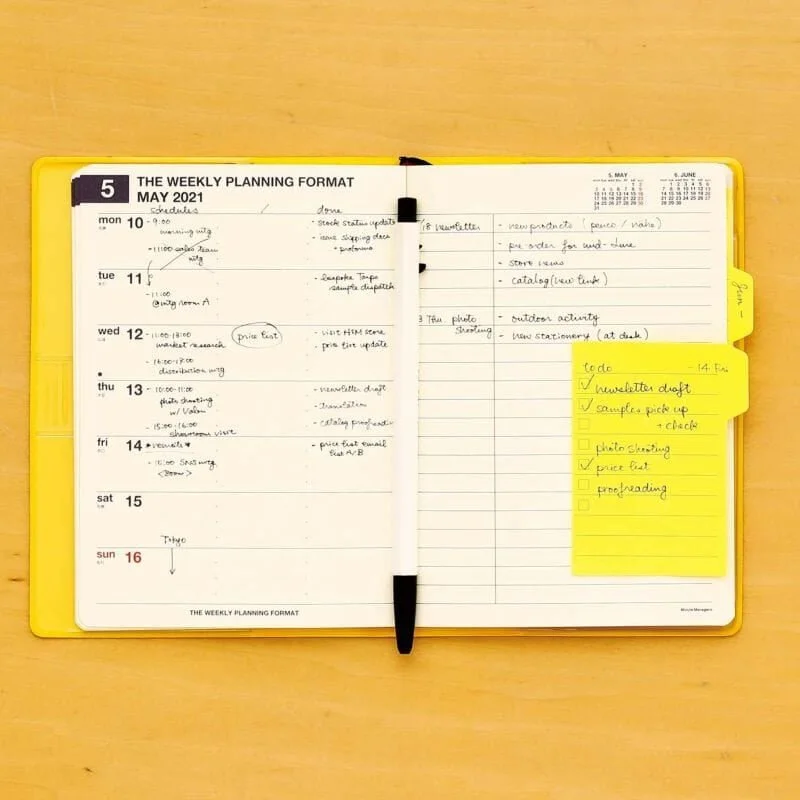 5
THE WEEKLY PLANNING FORMAT
MAY 2021
schedules / done
mon 10
- 9:00
morning mtg
- 11:00 sales team
mtg
- stock status update
- issue shipping docs
+ proforma
tue 11
- 11:00
@mtg room A
- bespoke Tarps
sample dispatch
wed 12
- 11:00-13:00
market research
- 16:00-17:00
distribution mtg
price list
- visit H&M store
- price list update
thu 13
- 10:00-11:00
photo shooting
w/
- 15:00-16:00
showroom visit
- newsletter draft
- translation
- catalog proofreading
fri 14
remote
- 15:00 SNS mtg
<Zoom>
- price list email
list A/B
sat 15
sun 16
Tokyo
THE WEEKLY PLANNING FORMAT
5. MAY
6. JUNE
/18 newsletter
- new products (penco / nahe)
- pre-order for mid-June
- store news
- catalog (new link)
Thu. photo
shooting
- outdoor activity
- new stationery (at desk)
Jun -
to do - 14 Fri.
newsletter draft
samples pick up
+ check
photo shooting
price list
proofreading